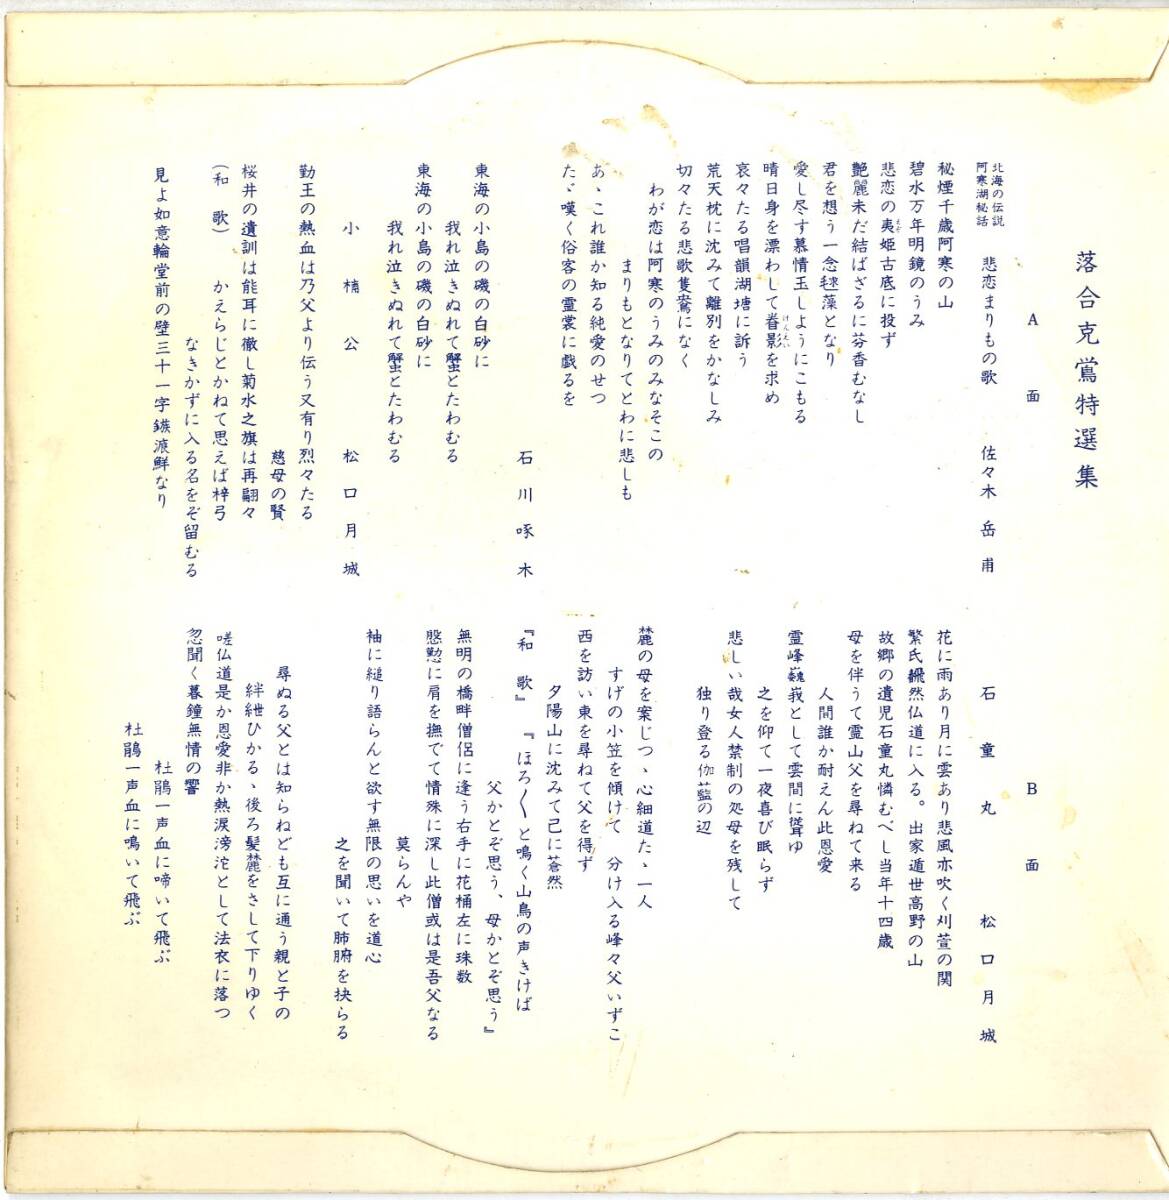 落合克鴬特選集
A面
北海の伝説
阿寒湖秘話
悲恋まりもの歌 佐々木岳甫
秘煙千歳阿寒の山
碧水万年明鏡のうみ
悲恋の夷姫古底に投ず
えぞ
艶麗未だ結ばざるに芬香むなし
君を想う一念毬藻となり
愛し尽す慕情玉しようにこもる
晴日身を漂わして眷影を求め
けんえい
哀々たる唱韻湖塘に訴う
荒天枕に沈みて離別をかなしみ
切々たる悲歌隻鴛になく
わが恋は阿寒のうみのみなそこの
まりもとなりてとわに悲しも
あゝこれ誰か知る純愛のせつ
たゞ嘆く俗客の霊裳に戯るを
石川啄木
東海の小島の磯の白砂に
我れ泣きぬれて蟹とたわむる
東海の小島の磯の白砂に
我れ泣きぬれて蟹とたわむる
小楠公 松口月城
勤王の熱血は乃父より伝う又有り烈々たる
慈母の賢
桜井の遺訓は能耳に徹し菊水之旗は再翩々
(和歌) かえらじとかねて思えば梓弓
なきかずに入る名をぞ留むる
見よ如意輪堂前の壁三十一字鏃痕鮮なり
B面
石童丸 松口月城
花に雨あり月に雲あり悲風亦吹く刈萱の関
繁氏飜然仏道に入る。出家遁世高野の山
故郷の遺児石童丸憐むべし当年十四歳
母を伴うて霊山父を尋ねて来る
人間誰か耐えん此恩愛
霊峰巍峩として雲間に聳ゆ
之を仰て一夜喜び眠らず
悲しい哉女人禁制の処母を残して
独り登る伽藍の辺
麓の母を案じつゝ心細道たゝ一人
すげの小笠を傾けて 分け入る峰々父いずこ
西を訪い東を尋ねて父を得ず
夕陽山に沈みて己に蒼然
『和歌』 『ほろ〱と鳴く山鳥の声きけば
父かとぞ思う、母かとぞ思う』
無明の橋畔僧侶に逢う右手に花桶左に珠数
慇懃に肩を撫でて情殊に深し此僧或は是吾父なる
莫らんや
袖に縋り語らんと欲す無限の思いを道心
之を聞いて肺腑を抉らる
尋ぬる父とは知らねども互に通う親と子の
絆紲ひかるゝ後ろ髪麓をさして下りゆく
嗟仏道是か恩愛非か熱涙滂沱として法衣に落つ
忽聞く暮鐘無情の響
杜鵑一声血に啼いて飛ぶ
杜鵑一声血に鳴いて飛ぶ